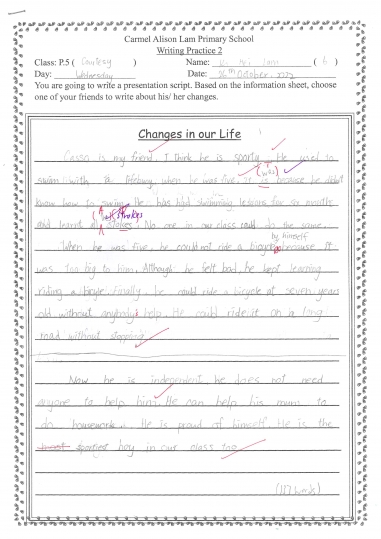 Carmel Alison Lam Primary School
Writing Practice 2
Class: P.5 ( Courtesy ) Name: Lam ( 6 )
Day: Wednesday Date: 26th October, 2022
You are going to write a presentation script. Based on the information sheet, choose
one of your friends to write about his/ her changes.
Changes in our Life
is my friend. I think he is sporty. He used to
swim with a lifebuoy when he was five. It is because he didn't
(was)
know how to swim. He has had swimming lessons for six months
and learnt all stokes. No one in our class could do the same.
strokes
by himself
When he was five, he could not ride a bicycle because it
was too big to him. Although he felt bad, he kept learning
riding a bicycle. Finally, he could ride a bicycle at seven years
old without anybody's help. He could ride it on a long
road without stopping.
Now he is independent, he does not need
anyone to help him. He can help his mum to
do housework. He is proud of himself. He is the
sportiest boy in our class too.
(117 words)